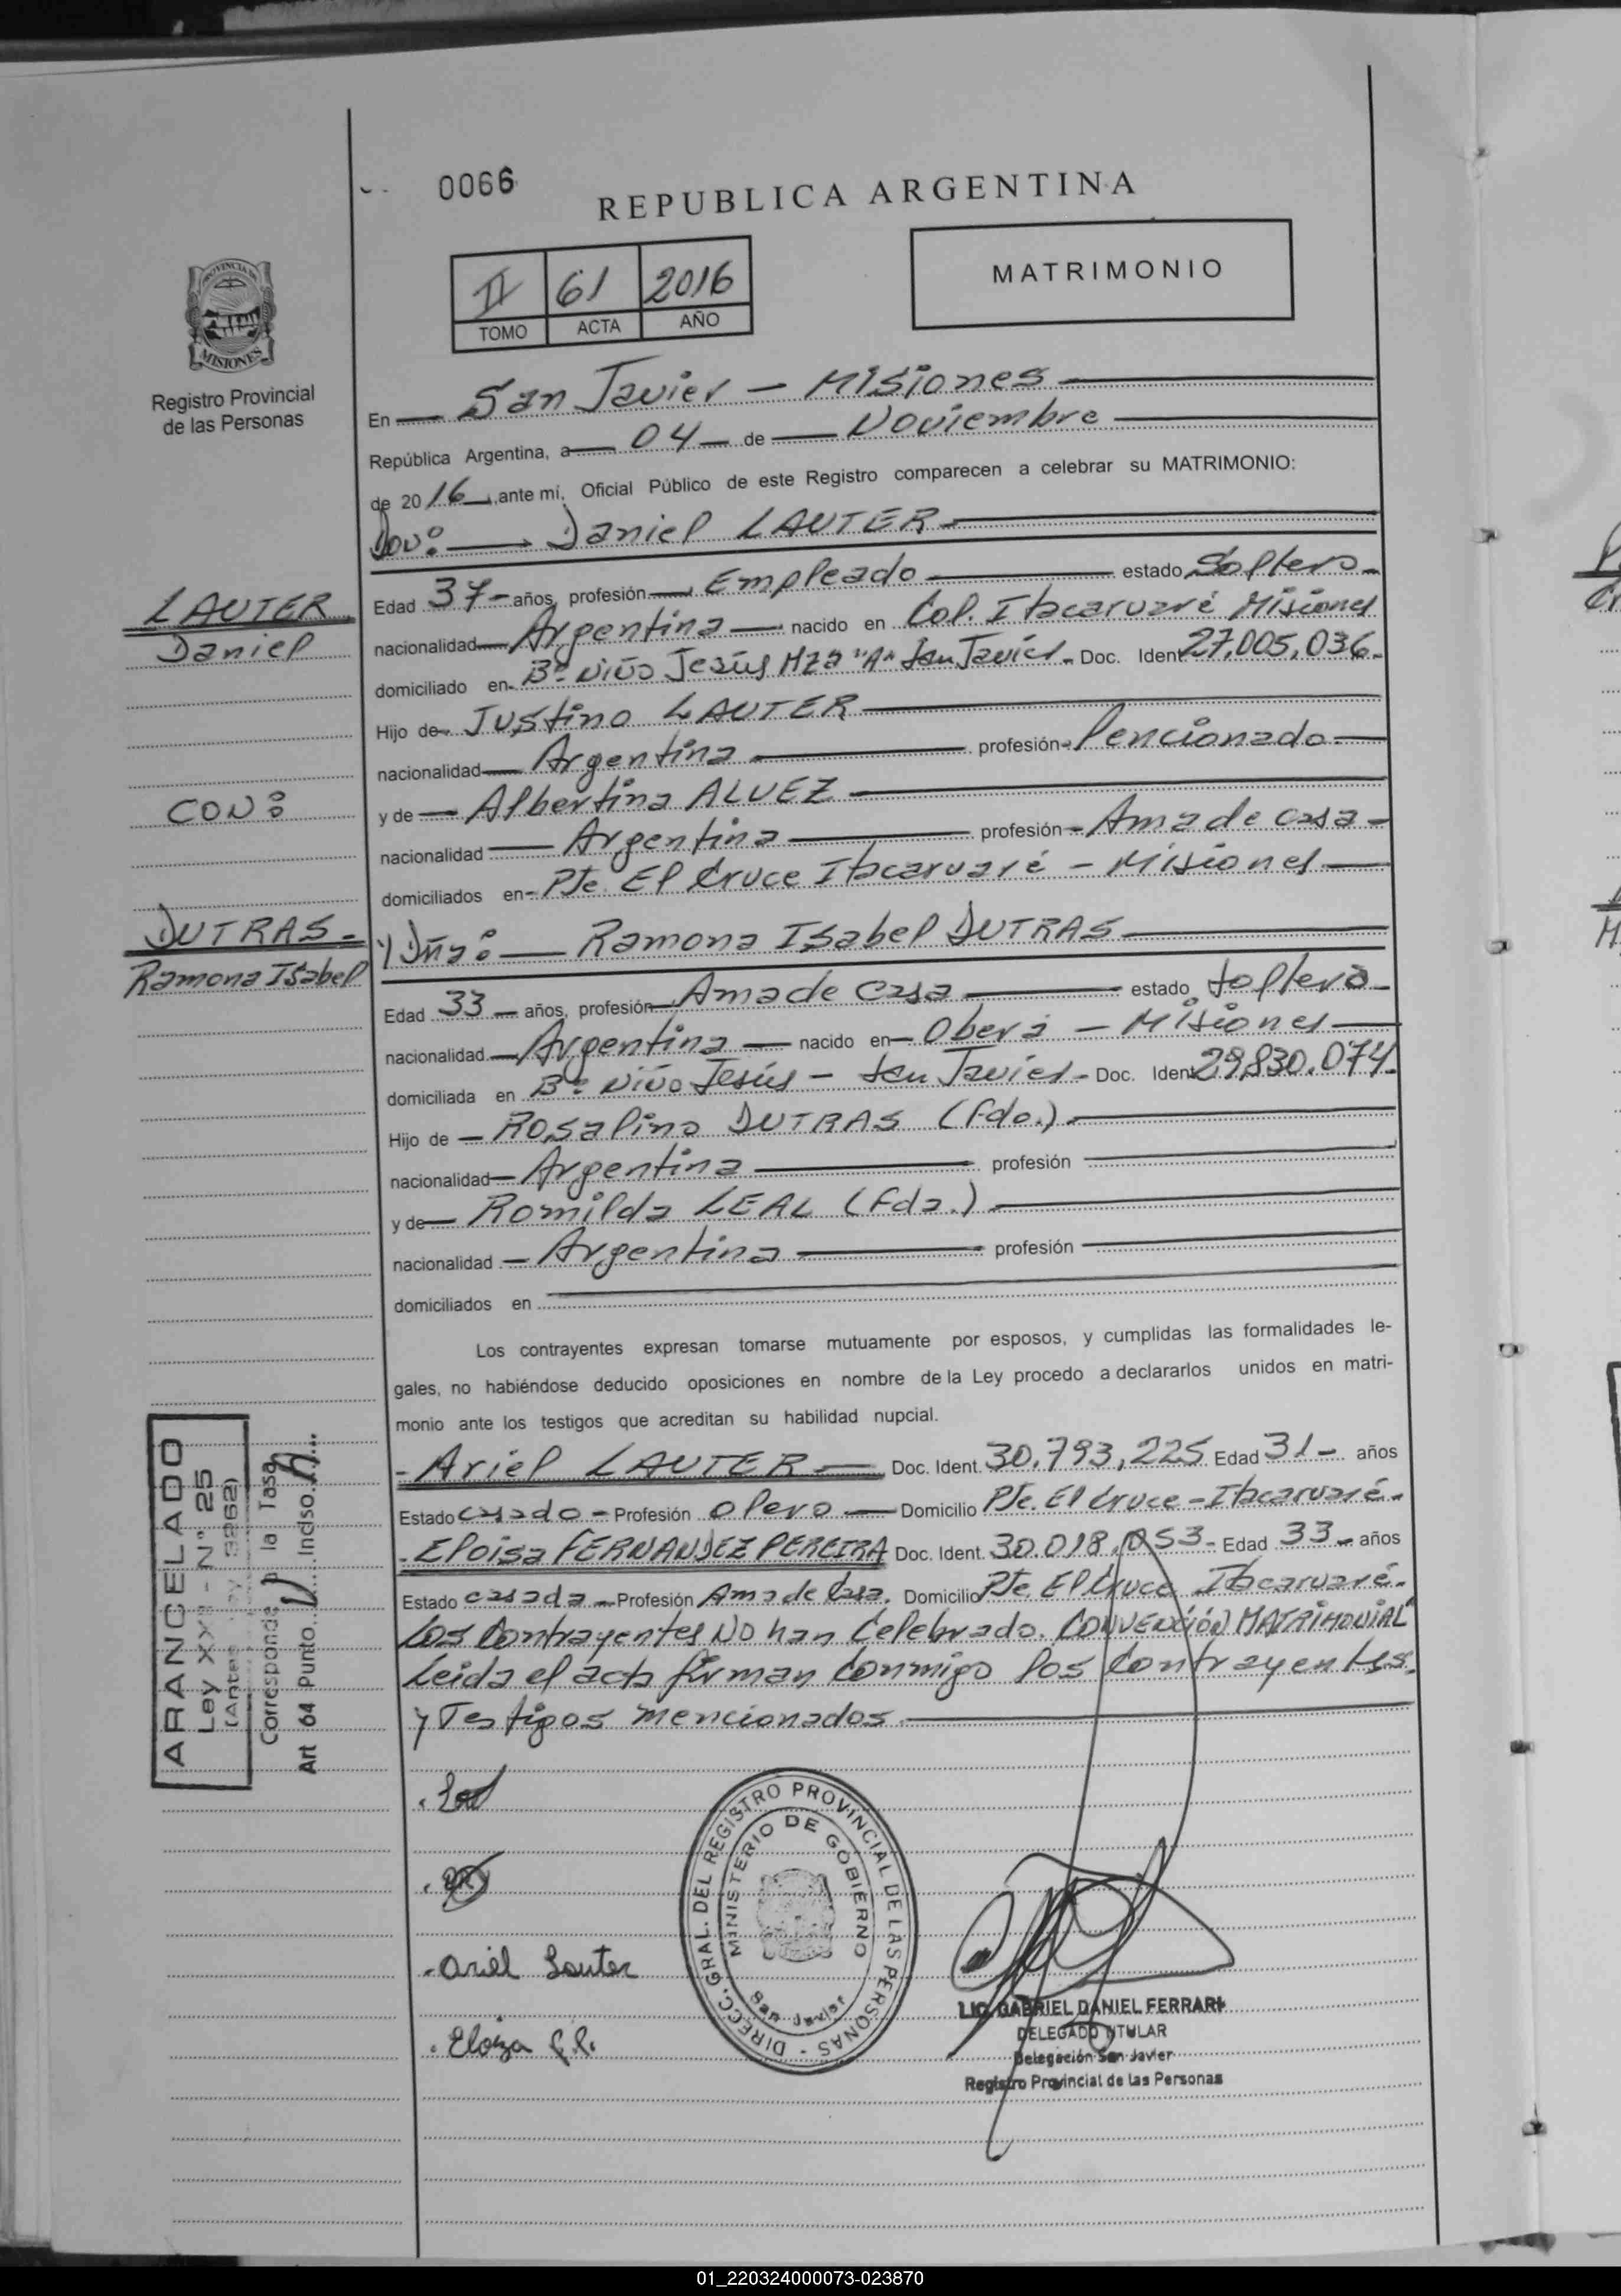 0066
REPUBLICA ARGENTINA
II 61 2016
TOMO ACTA AÑO
MATRIMONIO
PROVINCIA DE
MISIONES
Registro Provincial
de las Personas
En San Javier - Misiones
República Argentina, a 04 de Noviembre
de 2016, ante mí, Oficial Público de este Registro comparecen a celebrar su MATRIMONIO:
Don: Daniel LAUTER
Edad 37 años, profesión Empleado estado Soltero
nacionalidad Argentina nacido en Col. Itacaruaré Misiones
domiciliado en Bº Niño Jesús Mza "A" San Javier - Doc. Ident 27,005,036.
Hijo de Justino LAUTER
nacionalidad Argentina profesión Pencionado
y de Albertina ALVEZ
nacionalidad Argentina profesión Ama de casa
domiciliados en Pje. El Cruce Itacaruaré - Misiones
y Dña: Ramona Isabel DUTRAS
Edad 33 años, profesión Ama de casa estado soltera
nacionalidad Argentina nacido en Oberá - Misiones
domiciliada en Bº Niño Jesús - San Javier - Doc. Ident 29,830.074.
Hijo de Rosalino DUTRAS (fdo.)
nacionalidad Argentina profesión
y de Romilda LEAL (fda.)
nacionalidad Argentina profesión
domiciliados en
Los contrayentes expresan tomarse mutuamente por esposos, y cumplidas las formalidades le-
gales, no habiéndose deducido oposiciones en nombre de la Ley procedo a declararlos unidos en matri-
monio ante los testigos que acreditan su habilidad nupcial.
- Ariel LAUTER Doc. Ident. 30.793,225 Edad 31 - años
Estado casado - Profesión Olero Domicilio Pje. El Cruce - Itacaruaré -
- Eloisa FERNANDEZ PEREIRA Doc. Ident. 30.018.053 - Edad 33 - años
Estado casada - Profesión Ama de Casa. Domicilio Pje. El Cruce Itacaruaré -
Los Contrayentes No han Celebrado. CONVENCIÓN MATRIMONIAL
Leida el acta firman conmigo los Contrayentes.
y Testigos mencionados.
LAUTER
Daniel
CON:
DUTRAS -
Ramona Isabel
ARANCELADO
Ley XXII - Nº 25
Corresponde la Tasa
Art 64 Punto Inciso
- Ariel Lauter
. Eloiza F.P.
DIRECC. GRAL. DEL REGISTRO PROVINCIAL DE LAS PERSONAS -
MINISTERIO DE GOBIERNO
San Javier
LIC. GABRIEL DANIEL FERRARI
DELEGADO TITULAR
Delegación San Javier
Registro Provincial de las Personas
01_220324000073-023870